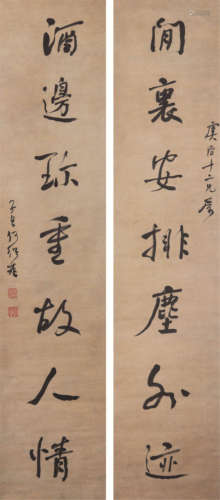 虞臣十二兄屬
閒裏安排塵外迹
酒邊珍重故人情
子貞何紹基